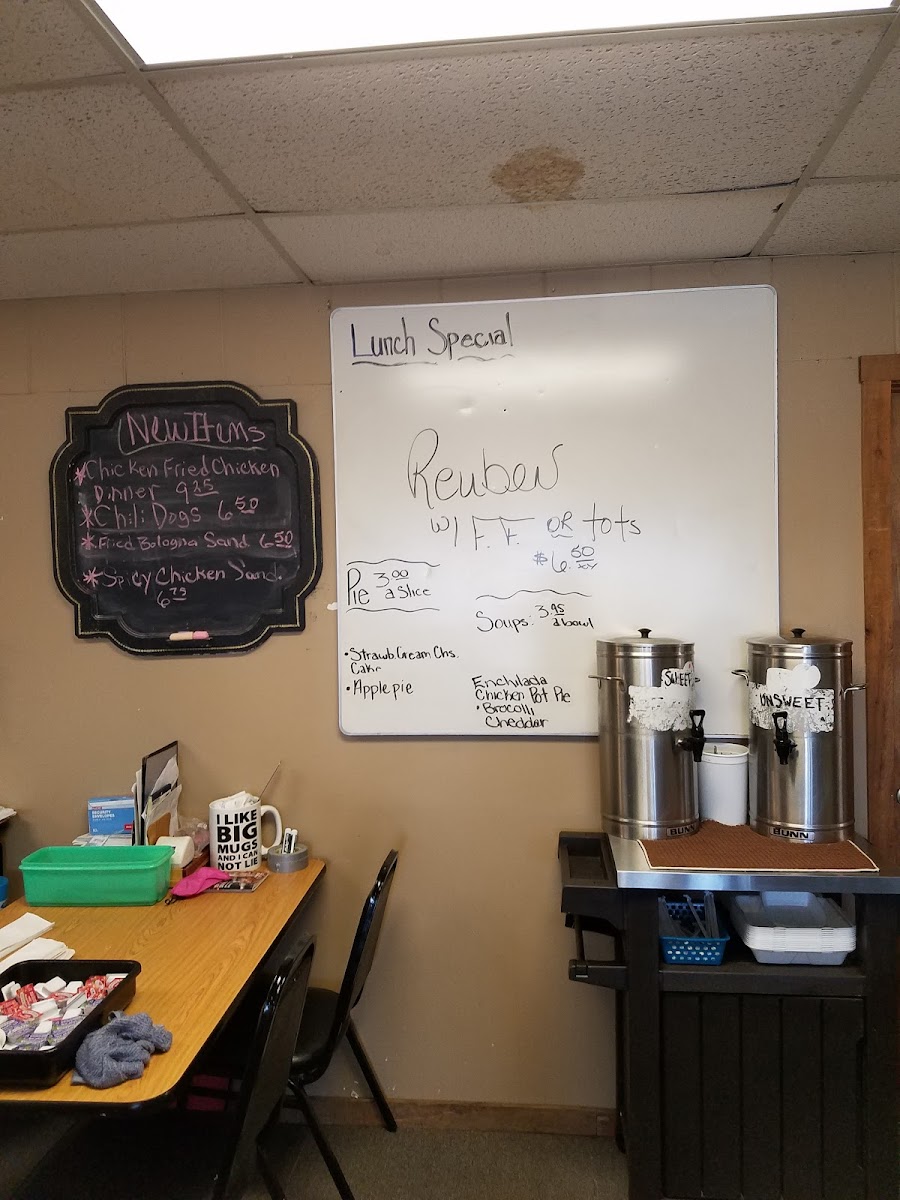 Lunch Special
New Items
*Chicken Fried Chicken
Dinner 9 25
*Chili Dogs 6 50
*Fried Bologna Sand 6 50
*Spicy Chicken Sand.
6 75
Reuben
w/ F.F. OR tots
$6.50
Pie 3.00
a Slice
Soups. 3.95
a bowl
• Strawb. Cream Chs.
Cake
• Apple pie
Enchilada
Chicken Pot Pie
• Brocolli
Cheddar
SWEET
UNSWEET
BUNN
BUNN
SECURITY
ENVELOPES
I LIKE
BIG
MUGS
AND I CAN
NOT LIE